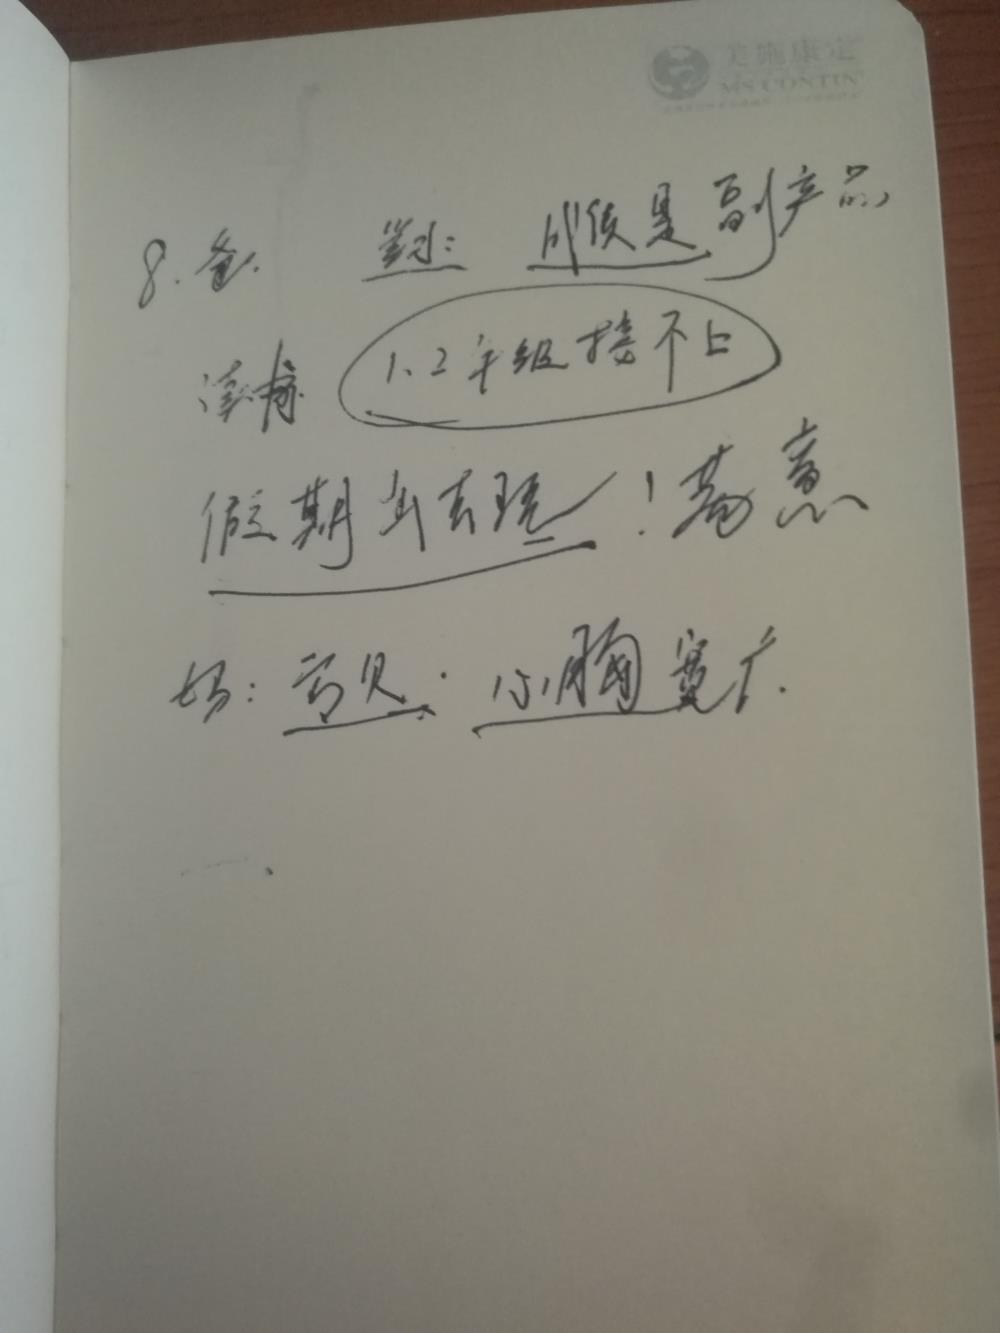 美施康定
MS CONTIN
8. 爸. 成绩是副产品
1、2年级接不上
假期出去玩! 意
妈: 心胸宽广.